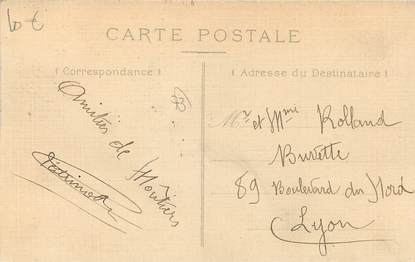 6 €
CARTE POSTALE
Correspondance
Adresse du Destinataire
Amitiés de Moûtiers
Mr et Mme Rolland
Burette
89 Boulevard du Nord
Lyon